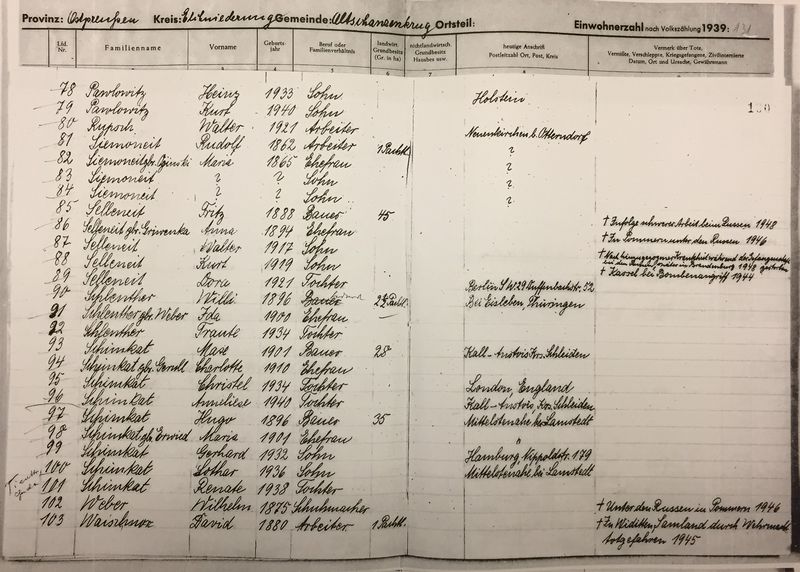 Provinz: Ostpreußen Kreis: Elchniederung Gemeinde: Altschanzenkrug Ortsteil: Einwohnerzahl nach Volkszählung 1939: 131
Lfd. Nr. Familienname Vorname Geburtsjahr Beruf oder Familienverhältnis landwirt. Grundbesitz (Gr. in ha) nichtlandwirtsch. Grundbesitz Hausbes. usw. heutige Anschrift Postleitzahl Ort, Post, Kreis Vermerk über Tote, Vermißte, Verschleppte, Kriegsgefangene, Zivilinternierte Datum, Ort und Ursache, Gewährsmann
78 Pawlowitz Heinz 1933 Sohn Holstein
79 Pawlowitz Kurt 1940 Sohn
80 Rupsch Walter 1921 Arbeiter Neuenkirchen b. Otterndorf
81 Siemoneit Rudolf 1862 Arbeiter 1 Pachtl. ?
82 Siemoneit gbr. Maria 1865 Ehefrau ?
83 Siemoneit ? ? Sohn ?
84 Siemoneit ? ? Sohn ?
85 Selleneit Fritz 1888 Bauer 45 † Infolge schwerer Arbeit beim Russen 1948
86 Selleneit gbr. Griwenka Anna 1894 Ehefrau † In Pommern unter den Russen 1946
87 Selleneit Walter 1917 Sohn
88 Selleneit Kurt 1919 Sohn in Brandenburg 1948 gestorben
89 Selleneit Dora 1921 Tochter † Kassel bei Bombenangriff 1944
90 Schlenther Willi 1896 Bauer Pachtl. Berlin SW29 52
91 Schlenther gbr. Weber Ida 1900 Ehefrau Bei Eisleben, Thüringen
92 Schlenther Traute 1934 Tochter
93 Schimkat Max 1901 Bauer 28 Kall-Anstois Krs. Schleiden
94 Schimkat gbr. Charlotte 1910 Ehefrau
95 Schimkat Christel 1934 Tochter London, England
96 Schimkat Anneliese 1940 Tochter Kall-Anstois, Krs. Schleiden
97 Schimkat Hugo 1896 Bauer 35 Mittelstenahe bei Lamstedt
98 Schimkat gbr. Erwied Maria 1901 Ehefrau "
99 Schimkat Gerhard 1932 Sohn Hamburg Nippoldstr. 179
100 Schimkat Lothar 1936 Sohn Mittelstenahe bei Lamstedt
101 Schimkat Renate 1938 Tochter
102 Weber Wilhelm 1875 Schuhmacher † Unter den Russen in Pommern 1946
103 Waischnor David 1880 Arbeiter 1 Pachtl. † In Widitten, Samland durch Wehrmacht
totgefahren 1945